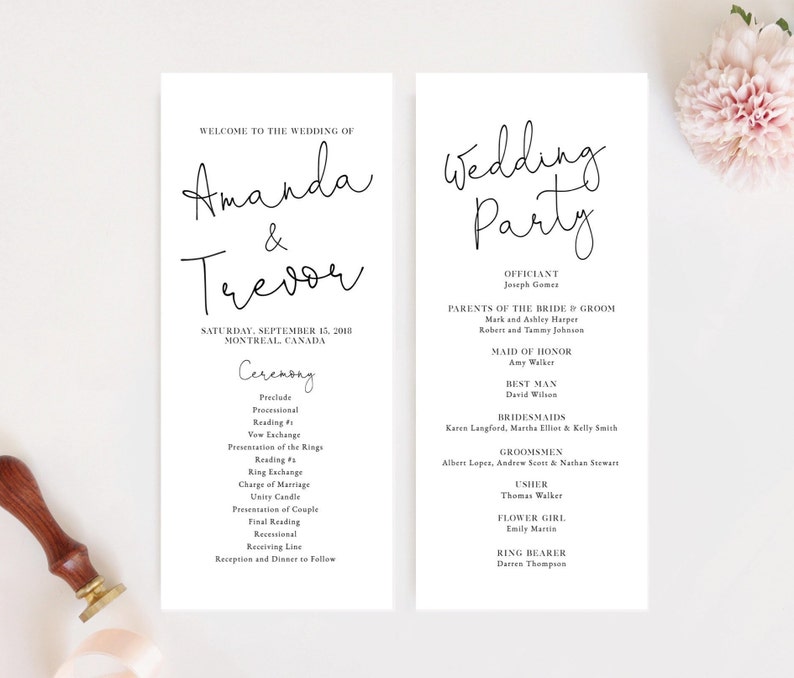 WELCOME TO THE WEDDING OF
Amanda
&
Trevor
SATURDAY, SEPTEMBER 15, 2018
MONTREAL, CANADA
Ceremony
Preclude
Processional
Reading #1
Vow Exchange
Presentation of the Rings
Reading #2
Ring Exchange
Charge of Marriage
Unity Candle
Presentation of Couple
Final Reading
Recessional
Receiving Line
Reception and Dinner to Follow
Wedding
Party
OFFICIANT
Joseph Gomez
PARENTS OF THE BRIDE & GROOM
Mark and Ashley Harper
Robert and Tammy Johnson
MAID OF HONOR
Amy Walker
BEST MAN
David Wilson
BRIDESMAIDS
Karen Langford, Martha Elliot & Kelly Smith
GROOMSMEN
Albert Lopez, Andrew Scott & Nathan Stewart
USHER
Thomas Walker
FLOWER GIRL
Emily Martin
RING BEARER
Darren Thompson